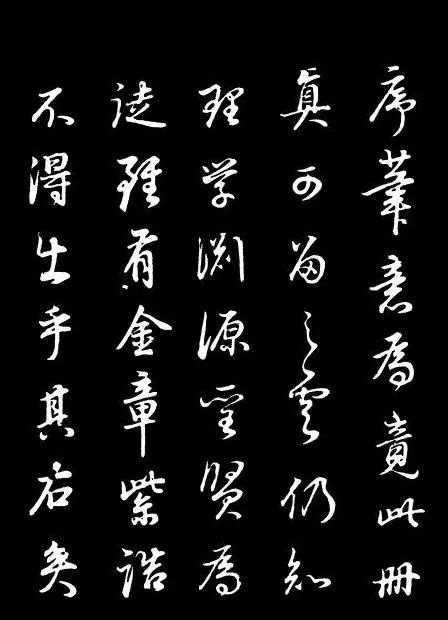 序筆意為竟此冊
真可留之雲仍知
理学渊源聖賢為
徒雖有金章紫誥
不得出乎其右矣